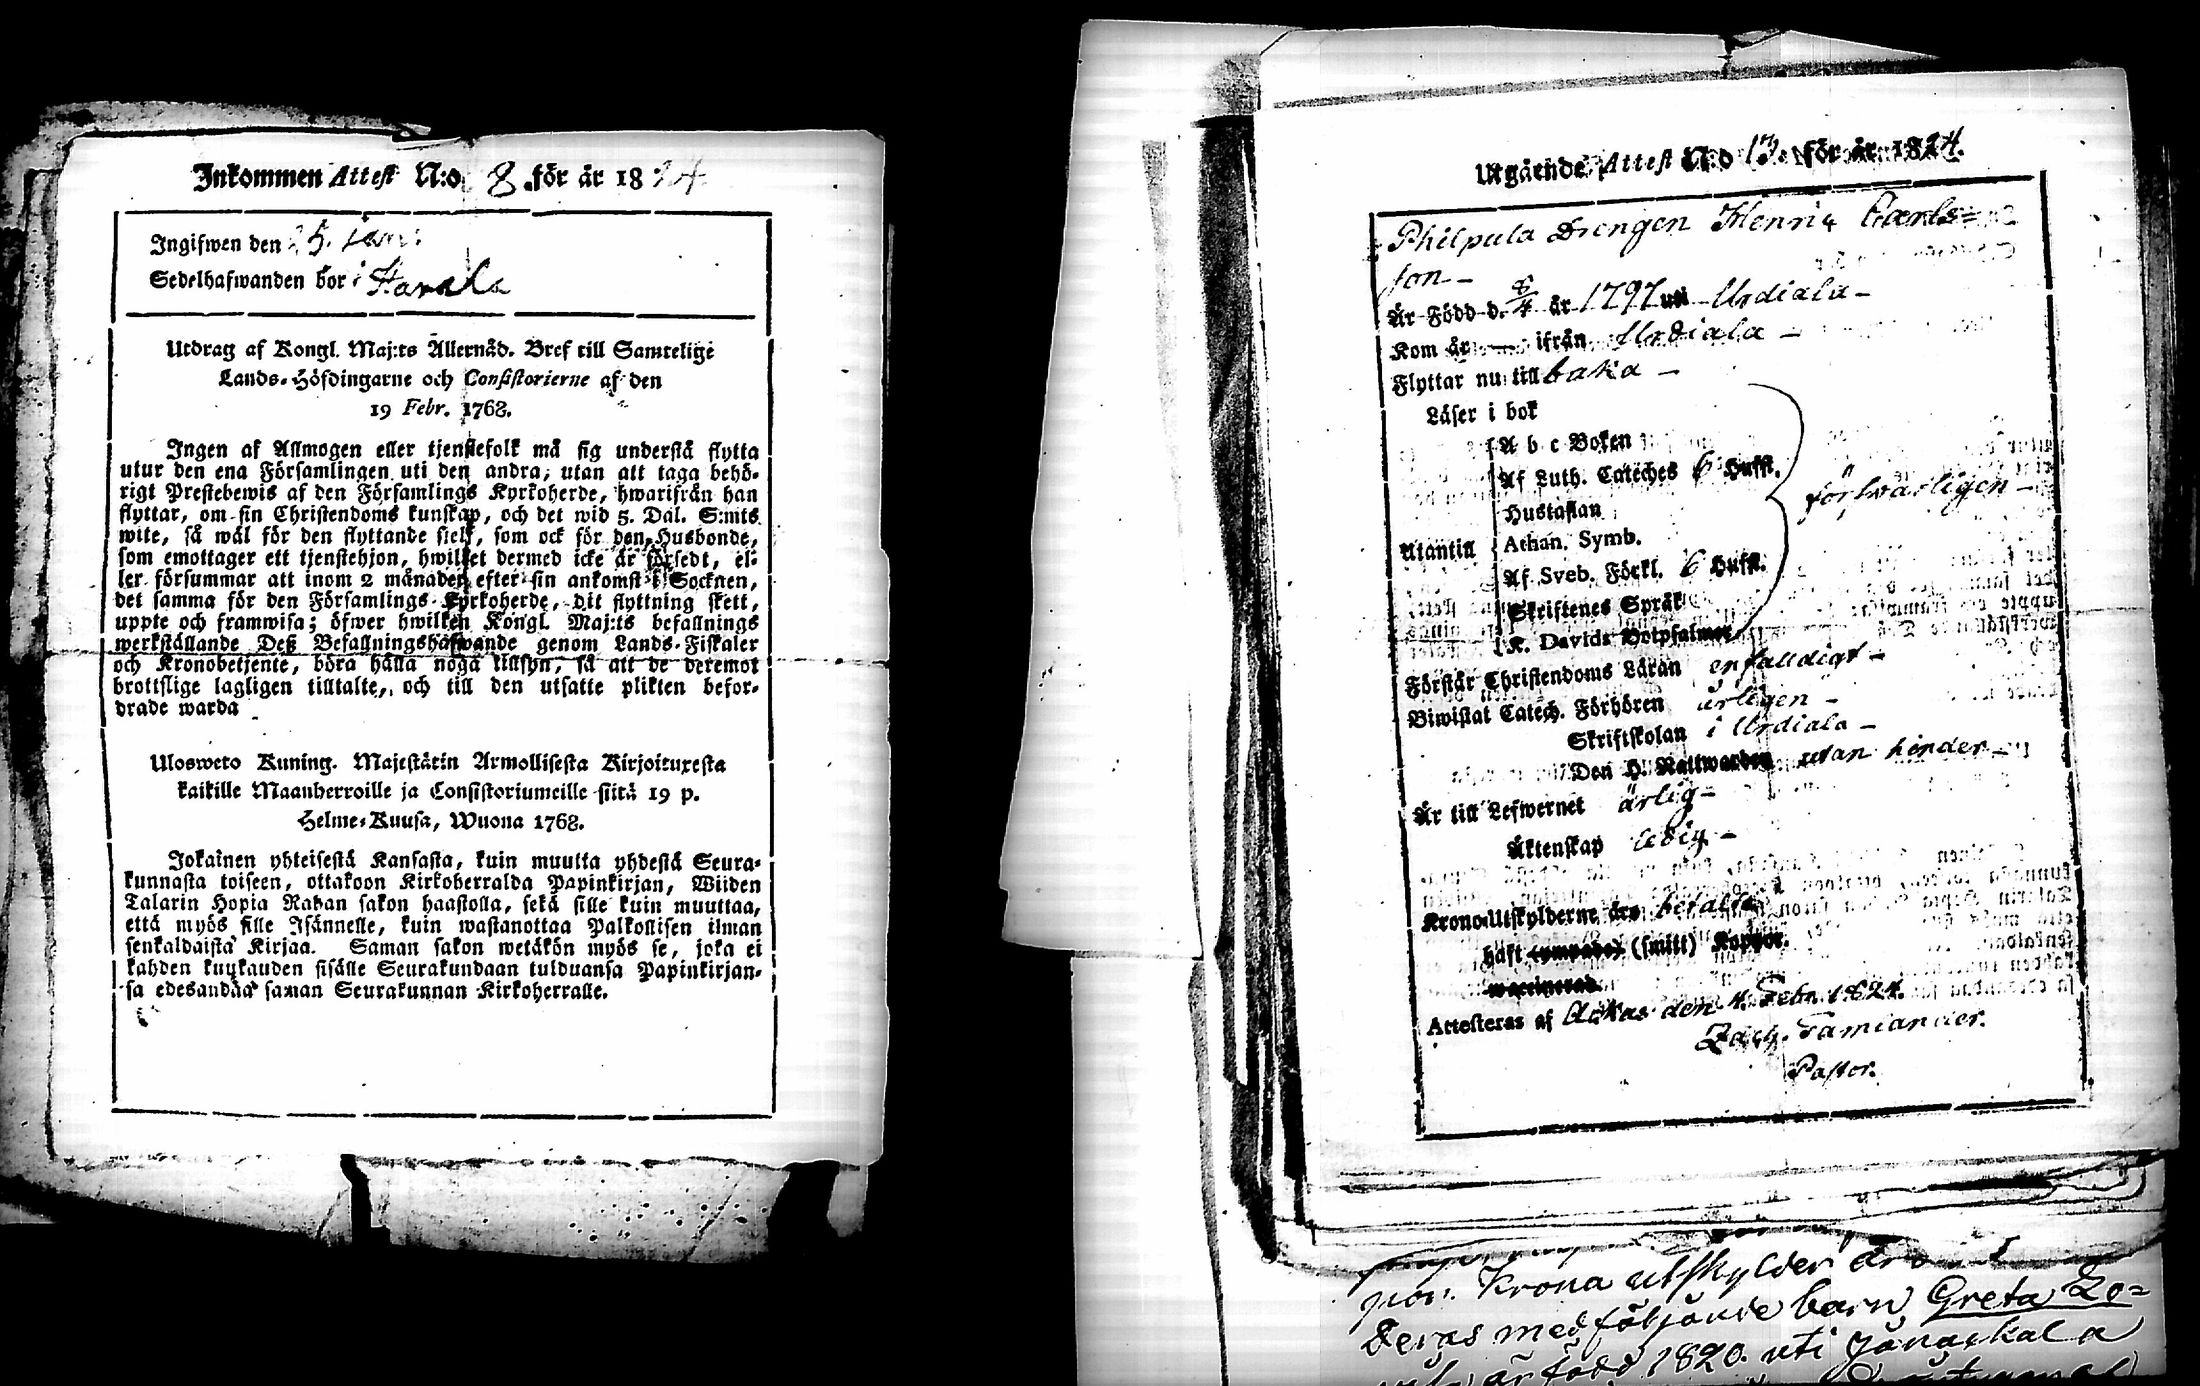 Inkommen Attest N:o 8 för år 1824.
Ingifwen den 25. Jan:
Sedelhafwanden bor i Harala
Utdrag af Kongl. Maj:ts Allernåd. Bref till Samtelige
Lands-Höfdingarne och Consistorierne af den
19 Febr. 1768.
Ingen af Allmogen eller tjenstefolk må sig understå flytta
utur den ena Församlingen uti den andra, utan att taga behö-
rigt Prestebewis af den Församlings Kyrkoherde, hwarifrån han
flyttar, om sin Christendoms kunskap, och det wid 5. Dal. S:mts
wite, så wäl för den flyttande sielf, som ock för den Husbonde,
som emottager ett tjenstehjon, hwilket dermed icke är försedt, el-
ler försummar att inom 2 månader efter sin ankomst i Socknen,
det samma för den Församlings Kyrkoherde, dit flyttning skett,
uppte och framwisa; öfwer hwilken Kongl. Maj:ts befallnings
werkställande Deß Befallningshafwande genom Lands-Fiskaler
och Kronobetjente, böra hålla noga tillsyn, så att de deremot
brottslige lagligen tilltalte, och till den utsatte plikten befor-
drade warda
Ulosweto Kuning. Majestätin Armollisesta Kirjoituxesta
kaikille Maanherroille ja Consistoriumeille siitä 19 p.
Helme-Kuusa, Wuona 1768.
Jokainen yhteisestä Kansasta, kuin muutta yhdestä Seura-
kunnasta toiseen, ottakoon Kirkoherralda Papinkirjan, Wiiden
Talarin Hopia Rahan sakon haastolla, sekä sille kuin muuttaa,
että myös sille Isännelle, kuin wastanottaa Palkollisen ilman
senkaldaista Kirjaa. Saman sakon wetäkön myös se, joka ei
kahden kuukauden sisälle Seurakundaan tulduansa Papinkirjan-
sa edesandaa saman Seurakunnan Kirkoherralle.
Utgående Attest N:o 13. för år 1824.
Philpula Drengen Henric Carls=
son –
Är Född d. 8/4 år 1797 uti Urdiala –
Kom år — ifrån Urdiala –
Flyttar nu till baka –
Läser i bok
A b c Boken
Af Luth. Cateches 6 Hufst.
Hustaflan
försvarligen –
Utantill
Athan. Symb.
Af Sveb. Förkl. 6 Hufst.
Skriftenes Språk
K. Davids Botpsalmer
Förstår Christendoms Läran enfalldigt –
Biwistat Catech. Förhören årligen –
Skriftskolan i Urdiala –
Den H. Nattwarden utan hinder –
Är till Lefwernet ärlig –
Äktenskap ledig –
Krono-Utskylderne äro betalte
haft (ympade) (smitt) Koppor.
waccinerad.
Attesteras af Ackas den 4. Febr. 1824.
Zach. Tamlander.
Pastor.
Krona utskylder äro
Deras medföljande barn Greta Lo=
är född 1820. uti Janackala